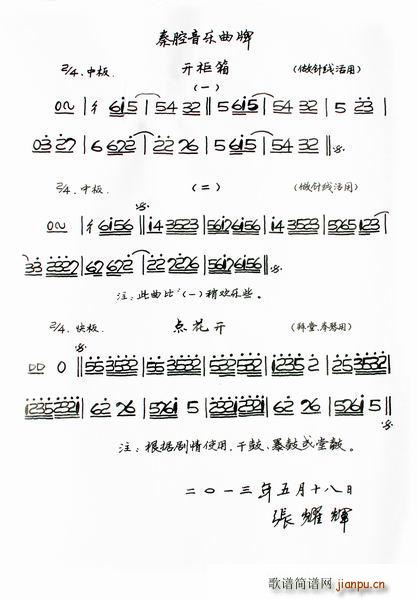 秦腔音乐曲牌
2/4.中板. 开柜箱 (做针线活用)
(一)
0~ | 彳 615 | 54 32 || 5 615 | 54 32 | 5 23 |
03 27 | 6 622 | 22 26 | 5 615 | 54 32 :||
2/4.中板. (二) (做针线活用)
0~ | 彳 6156 || i4 3523 | 5612 6156 | i4 3523 | 5265 123 |
33 2327 | 62 622 | 22 2226 | 5612 6156 :||
注:此曲比"(一)稍欢乐些。
2/4.快板. 点花开
DD 0 || 55 3532 | 55 3532 | 1235 2321 | 1235 2 | 25 3532 |
1235 2321 | 62 26 | 5261 5 | 1235 2321 | 62 26 | 5261 5 ||
注:根据剧情使用.干鼓、暴鼓或堂鼓。
二〇一三年五月十八日
張耀輝
歌谱简谱网
jianpu.cn